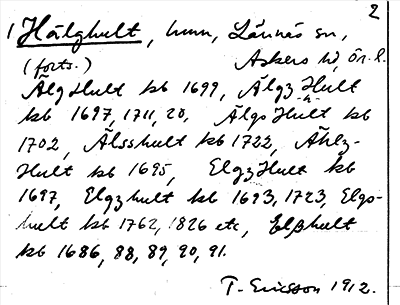 2
1 Hälghult, hmn, Lännäs sn,
(forts.) Askers hd, Ör. l.
Älg Hult kb 1699, Älgz Hult
kb 1697, 1711, 20, Älgs Hult kb
1702, Älsshult kb 1722, Ählz-
Hult kb 1695, Elgz Hult kb
1697, Elgzhult kb 1693, 1723, Elgs-
hult kb 1762, 1826 etc, Elßhult
kb 1686, 88, 89, 90, 91.
T. Ericsson 1912.